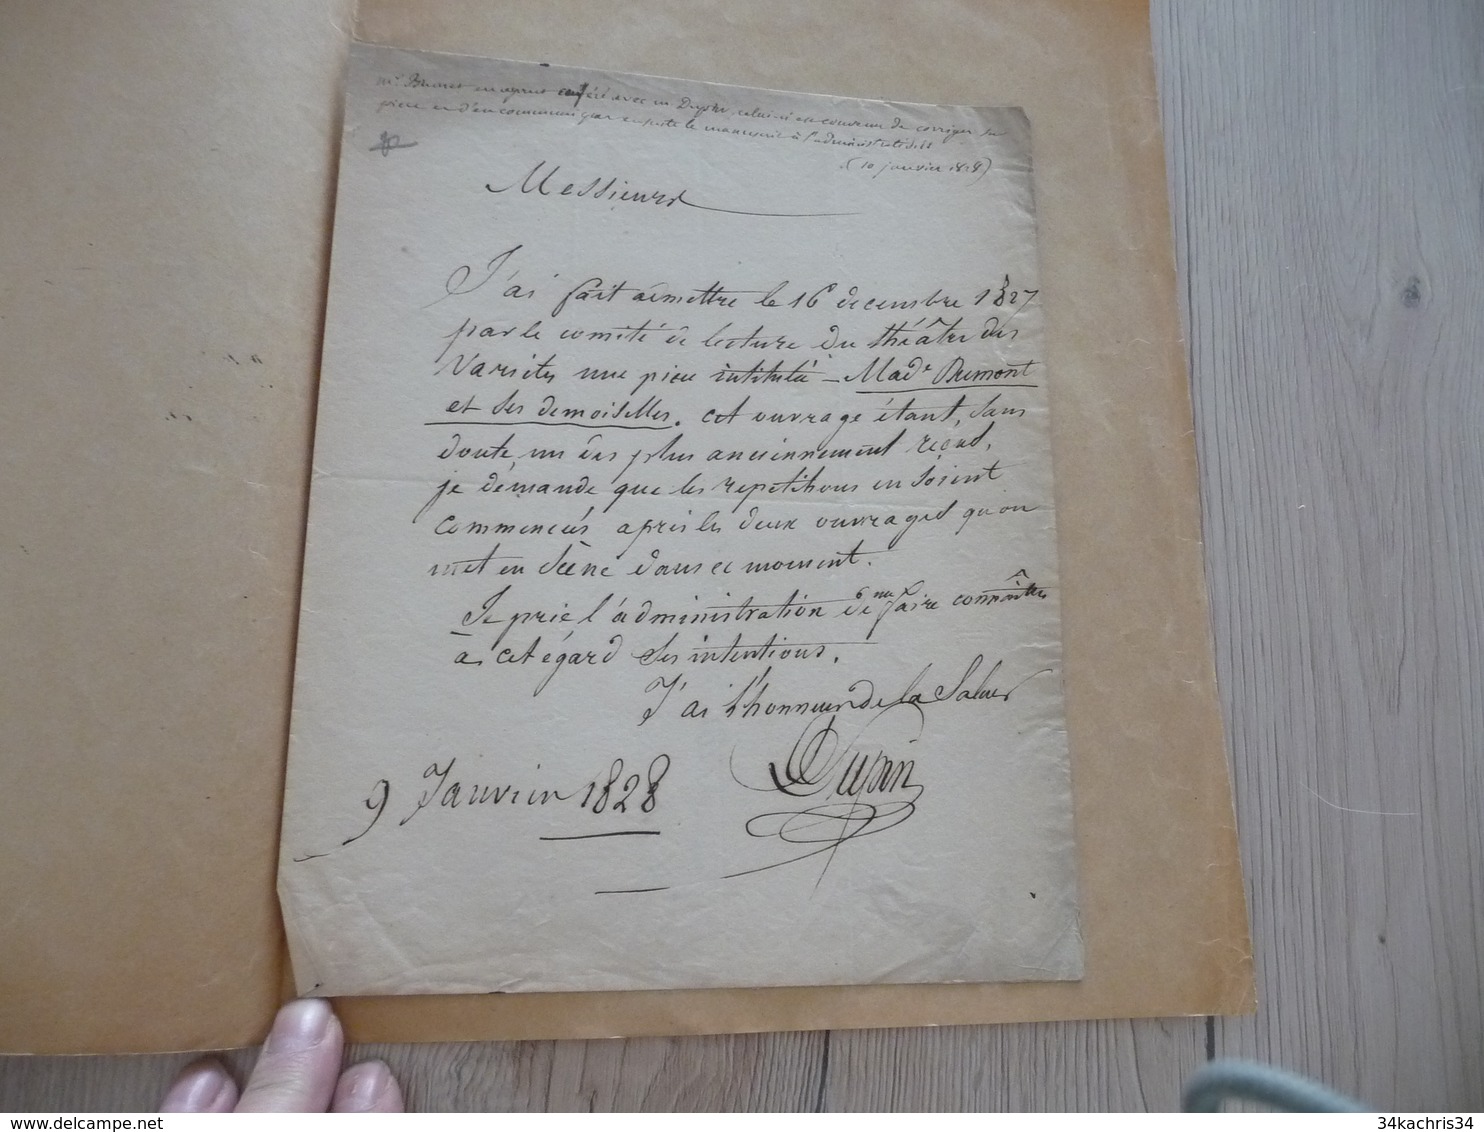 mr Brunet en ayant conféré avec mr Dupin, celui-ci est convenu de corriger sa
pièce et d'en communiquer ensuite le manuscrit à l'administration
(10 janvier 1828)
Messieurs
J'ai fait admettre le 16 decembre 1827
par le comité de lecture du théâtre des
Variétés une pièce intitulé - Made Dumont
et ses demoiselles. cet ouvrage étant, sans
doute un des plus anciennement reçus,
je démande que les repetitions en soient
commencés après les deux ouvrages qu'on
met en scène dans ce moment.
Je prie l'administration de me faire connoître
à cet égard ses intentions.
J'ai l'honneur de la Saluer
Dupin
9 Janvier 1828
34kachris34